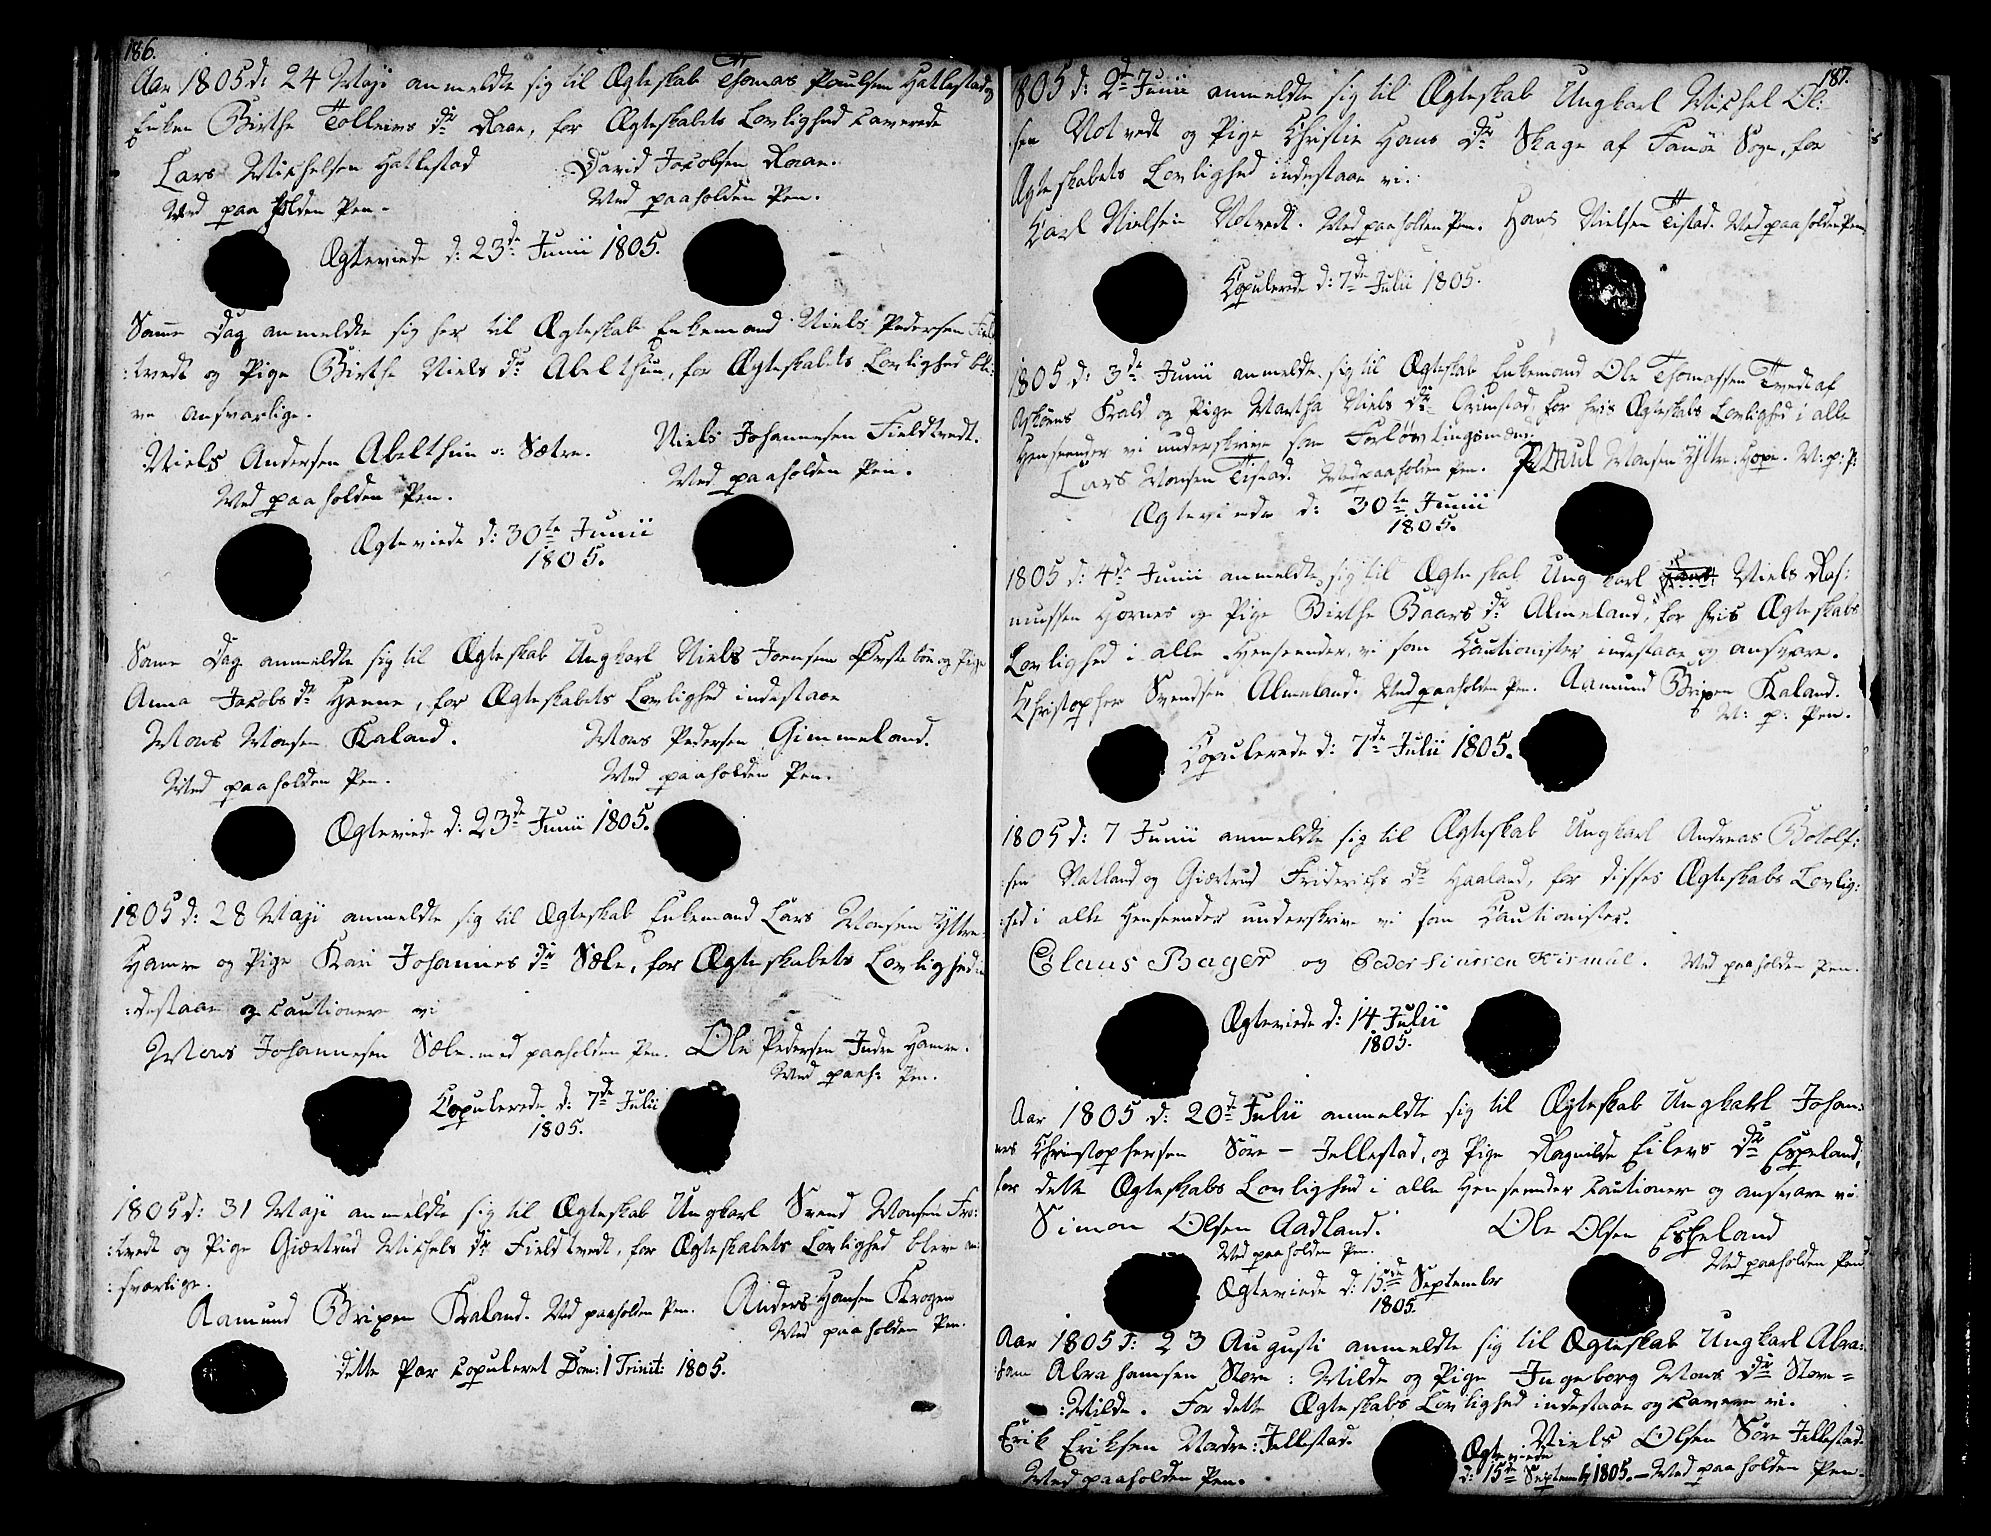 186.
Aar 1805 d: 24 Maji anmeldte sig til Ægteskab Thomas Paulsen Hatlestad og
Enken Birthe Tolleivs dr Raae, for Ægteskabets Lovlighed caverede
Lars Michelsen Hatlestad David Jacobsen Raae.
Med paaholden Pen. Med paaholden Pen.
Ægteviede d: 23de Junii 1805.
Samme Dag anmeldte sig her til Ægteskab Enkemand Niels Pedersen Field
:tvedt og Pige Birthe Niels dr Abelthun, for Ægteskabets Lovlighed bli:
ve ansvarlige.
Niels Andersen Abelthun o: Sætre. Niels Johannesen Fieldtvedt.
Med paaholden Pen. Med paaholden Pen.
Ægteviede d: 30te Junii
1805.
Same Dag anmeldte sig til Ægteskab Ungkarl Niels Joensen Øvstebøe og Pige
Anna Jacobs dr Henne, for Ægteskabets Lovlighed indestaae
Mons Monsen Kaland. Mons Pedersen Gimmeland.
Med paaholden Pen. Med paaholden Pen.
Ægteviede d: 23de Junii 1805.
1805 d: 28 Maji anmeldte sig til Ægteskab Enkemand Lars Monsen Yttre
Hamre og Pige Kari Johannes dr Sæle, for Ægteskabets Lovlighed in
:destaae og cautionere vi
Mons Johannesen Sæle. med paaholden Pen. Ole Pedersen Indre Hamre.
Med paah: Pen.
Copulerede d: 7de Julii
1805.
1805 d: 31 Maji anmeldte sig til Ægteskab Ungkarl Svend Monsen Fro:
:tvedt og Pige Giærtrud Michels dr Fieldtvedt, for Ægteskabets Lovlighed bleve an:
:svarlige.
Aamund Brixen Kaland. Med paaholden Pen. Anders Hansen Krogen
Med paaholden Pen.
dette Par copuleret Dom: 1 Trinit: 1805.
187.
1805 d: 2d Junii anmeldte sig til Ægteskab Ungkarl Michel Ol:
sen Notvedt og Pige Christie Hans dr Skage af Fanøe Sogn, for
Ægteskabets Lovlighed indestaae vi.
Karl Nielsen Notvedt. Med paaholden Pen. Hans Nielsen Tistad. Med paaholden Pen.
Copulerede d: 7de Julii 1805.
1805 d: 3de Junii anmeldte sig til Ægteskab Enkemand Ole Thomassen Tvedt af
Askøens Kald og Pige Martha Niels dr Grimstad, for hvis Ægteskabs Lovlighed i alle
Henseender vi underskrive som Forlovlingsmænd.
Lars Monsen Tistad. Med paaholden Pen. Poul Monsen Yttre: Hope. M: p: P:
Ægteviede d: 30te Junii
1805.
1805 d: 4de Junii anmeldte sig til Ægteskab Ungkarl Niels Ras:
mussen Hornes og Pige Birthe Baars dr Almeland, for hvis Ægteskabs
Lovlighed i alle Henseender, vi som Cautionister indestaae og ansvare.
Christopher Svendsen Almeland. Med paaholden Pen. Aamund Brixen Kaland.
M: p: Pen.
Copulerede d: 7de Julii 1805.
1805 d: 7 Junii anmeldte sig til Ægteskab Ungkarl Andreas Botolf:
:sen Natland og Giærtrud Friderichs dr Haaland, for disses Ægteskabs Lovlig:
:hed i alle Henseender underskrive vi som Cautionister.
Claus Bager og Peder Siursen Kirmul. Med paaholden Pen.
Ægteviede d: 14 Julii
1805.
Aar 1805 d: 20d Julii anmeldte sig til Ægteskab Ungkarl Johan:
nes Christophersen Søre - Jellestad, og Pige Ragnilde Eilers dr Espeland,
for dette Ægteskabs Lovlighed i alle Henseender cautionere og ansvare vi
Simon Olsen Aadland. Ole Olsen Espeland
Med paaholden Pen. Med paaholden Pen
Ægteviede d: 15de September
1805.
Aar 1805 d: 23 Augusti anmeldte sig til Ægteskab Ungkarl Abra:
:ham Abrahamsen Store: Milde og Pige Ingeborg Mons dr Store=
:Milde. For dette Ægteskabs Lovlighed indestaae og cavere vi.
Erik Eriksen Nordre: Jellestad. Niels Olsen Søre Jellestad.
Med paaholden Pen. Ægteviede
d: 15de Septemb 1805. - Med paaholden Pen.